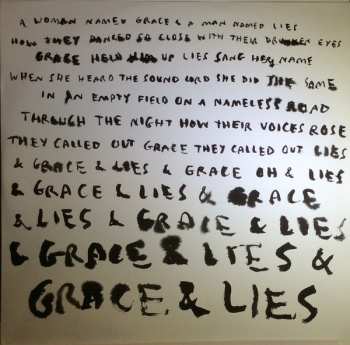 A WOMAN NAMED GRACE & A MAN NAMED LIES
HOW THEY DANCED SO CLOSE WITH THEIR DRUNKEN EYES
GRACE HELD HIM UP LIES SANG HER NAME
WHEN SHE HEARD THE SOUND LORD SHE DID THE SAME
IN AN EMPTY FIELD ON A NAMELESS ROAD
THROUGH THE NIGHT HOW THEIR VOICES ROSE
THEY CALLED OUT GRACE THEY CALLED OUT LIES
& GRACE & LIES & GRACE OH & LIES
& GRACE & LIES & GRACE
& LIES & GRACE & LIES
& GRACE & LIES &
GRACE & LIES